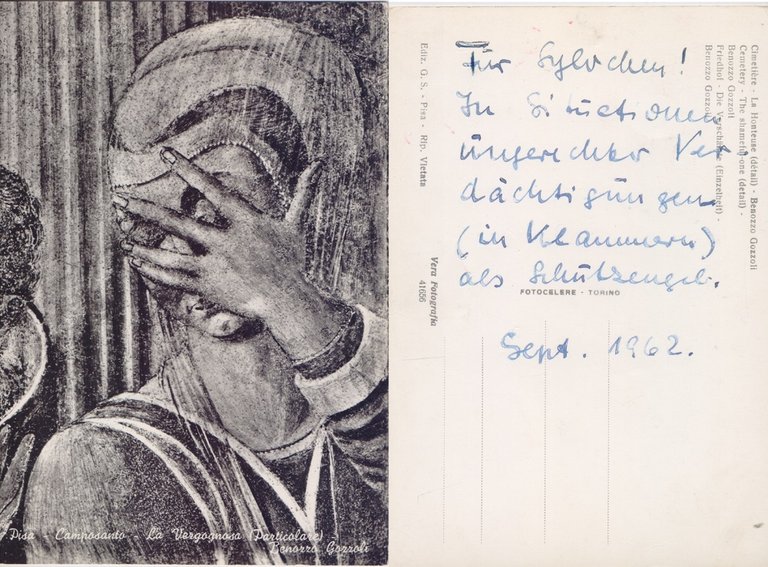 Pisa - Camposanto - La Vergognosa (Particolare)
Benozzo Gozzoli
Ediz. G. S. - Pisa - Rip. Vietata
Vera Fotografia
41656
Für Sylvchen!
In Situationen
ungerechter Ver
dächtigungen
(in Klammern)
als Schutzengel.
FOTOCELERE - TORINO
Sept. 1962.
Cimetière - La Honteuse (détail) - Benozzo Gozzoli
Cemetery - The shameful-one (detail) -
Benozzo Gozzoli
Friedhof - Die Verschämte (Einzelheit) -
Benozzo Gozzoli